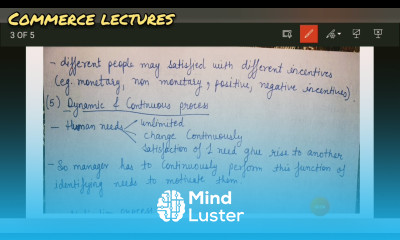 COMMERCE LECTURES
3 OF 5
- different people may satisfied with different incentives
(eg. monetary, non monetary, positive, negative incentives).
(5) Dynamic & Continuous process
- Human needs unlimited
change Continuously
satisfaction of 1 need give rise to another
- So manager has to continuously perform this function of
identifying needs to motivate them.
Mind
Luster